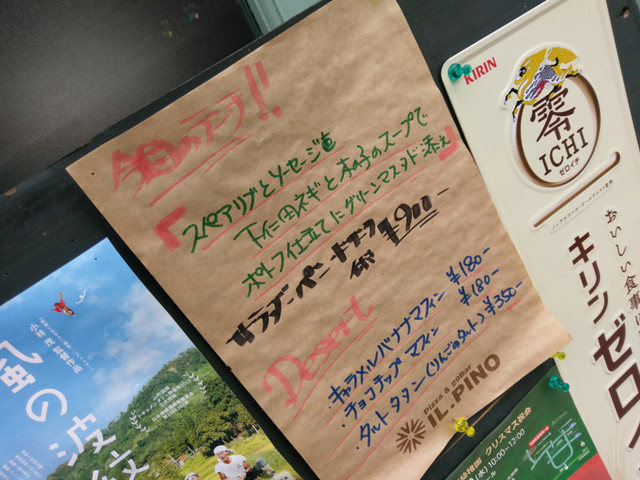 今日のランチ!!
「スペアリブとソーセージを
下仁田ネギと木の子のスープで
ポトフ仕立てにグリーンマスタード添え」
サラダ・パン・ドリンク
付 ¥900-
Dessert
・キャラメルバナナマフィン ¥180-
・チョコチップマフィン ¥180-
・タルトタタン(りんごのタルト) ¥350-
Pizza & 20Bar
IL PINO
KIRIN
零
ICHI
ゼロイチ
おいしい食事に
キリンゼロ
小林茂監督作品
風の波
クリスマス祝会
(水) 10:00~12:00